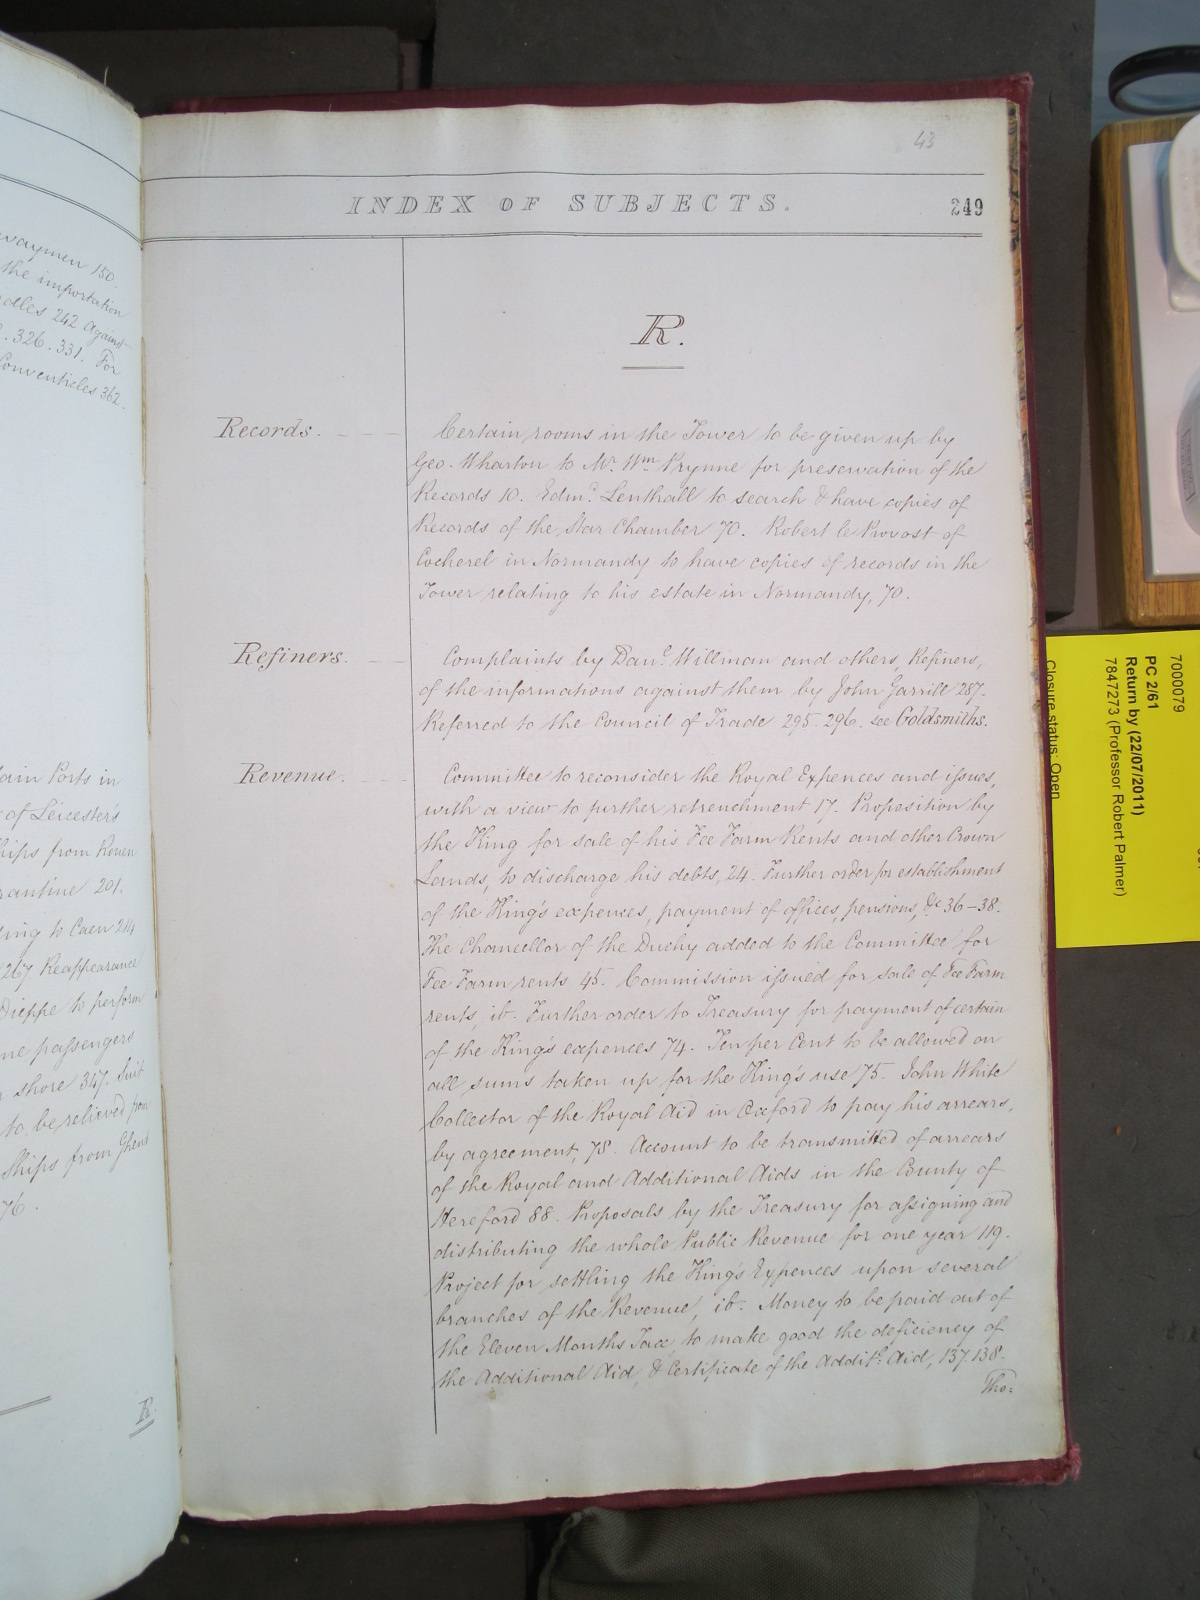 waymen 150.
the importation
dles 242 Against
. 326. 331. For
Conventicles 362.
ain Ports in
of Leicester's
hips from Rouen
rantine 201.
ing to Caen 214
267 Reappearance
Dieppe to perform
me passengers
shore 347. Suit
to be relieved from
Ships from Ghent
76.
R.
43
INDEX OF SUBJECTS. 249
R.
Records. Certain rooms in the Tower to be given up by
Geo. Wharton to Mr. Wm. Prynne for preservation of the
Records 10. Edmd. Lenthall to search & have copies of
Records of the Star Chamber 70. Robert le Provost of
Cocherel in Normandy to have copies of records in the
Tower relating to his estate in Normandy, 70.
Refiners. Complaints by Danl. Hillman and others, Refiners,
of the informations against them by John Garrill 287.
Referred to the Council of Trade 295. 296. see Goldsmiths.
Revenue. Committee to reconsider the Royal Expences and issues,
with a view to further retrenchment 17. Proposition by
the King for sale of his Fee Farm Rents and other Crown
Lands, to discharge his debts, 24. Further order for establishment
of the King's expences, payment of offices, pensions, &c 36-38.
The Chancellor of the Duchy added to the Committee for
Fee Farm rents 45. Commission issued for sale of Fee Farm
rents, ib. Further order to Treasury for payment of certain
of the King's expences 74. Ten per Cent to be allowed on
all sums taken up for the King's use 75. John White
Collector of the Royal Aid in Oxford to pay his arrears,
by agreement, 78. Account to be transmitted of arrears
of the Royal and Additional Aids in the County of
Hereford 88. Proposals by the Treasury for assigning and
distributing the whole Public Revenue for one year 119.
Project for settling the King's Expences upon several
branches of the Revenue, ib. Money to be paid out of
the Eleven Months Tax, to make good the deficiency of
the Additional Aid, & Certificate of the Additl. Aid, 137. 138.
Tho:
7000079
PC 2/61
Return by (22/07/2011)
7847273 (Professor Robert Palmer)
Closure status: Open